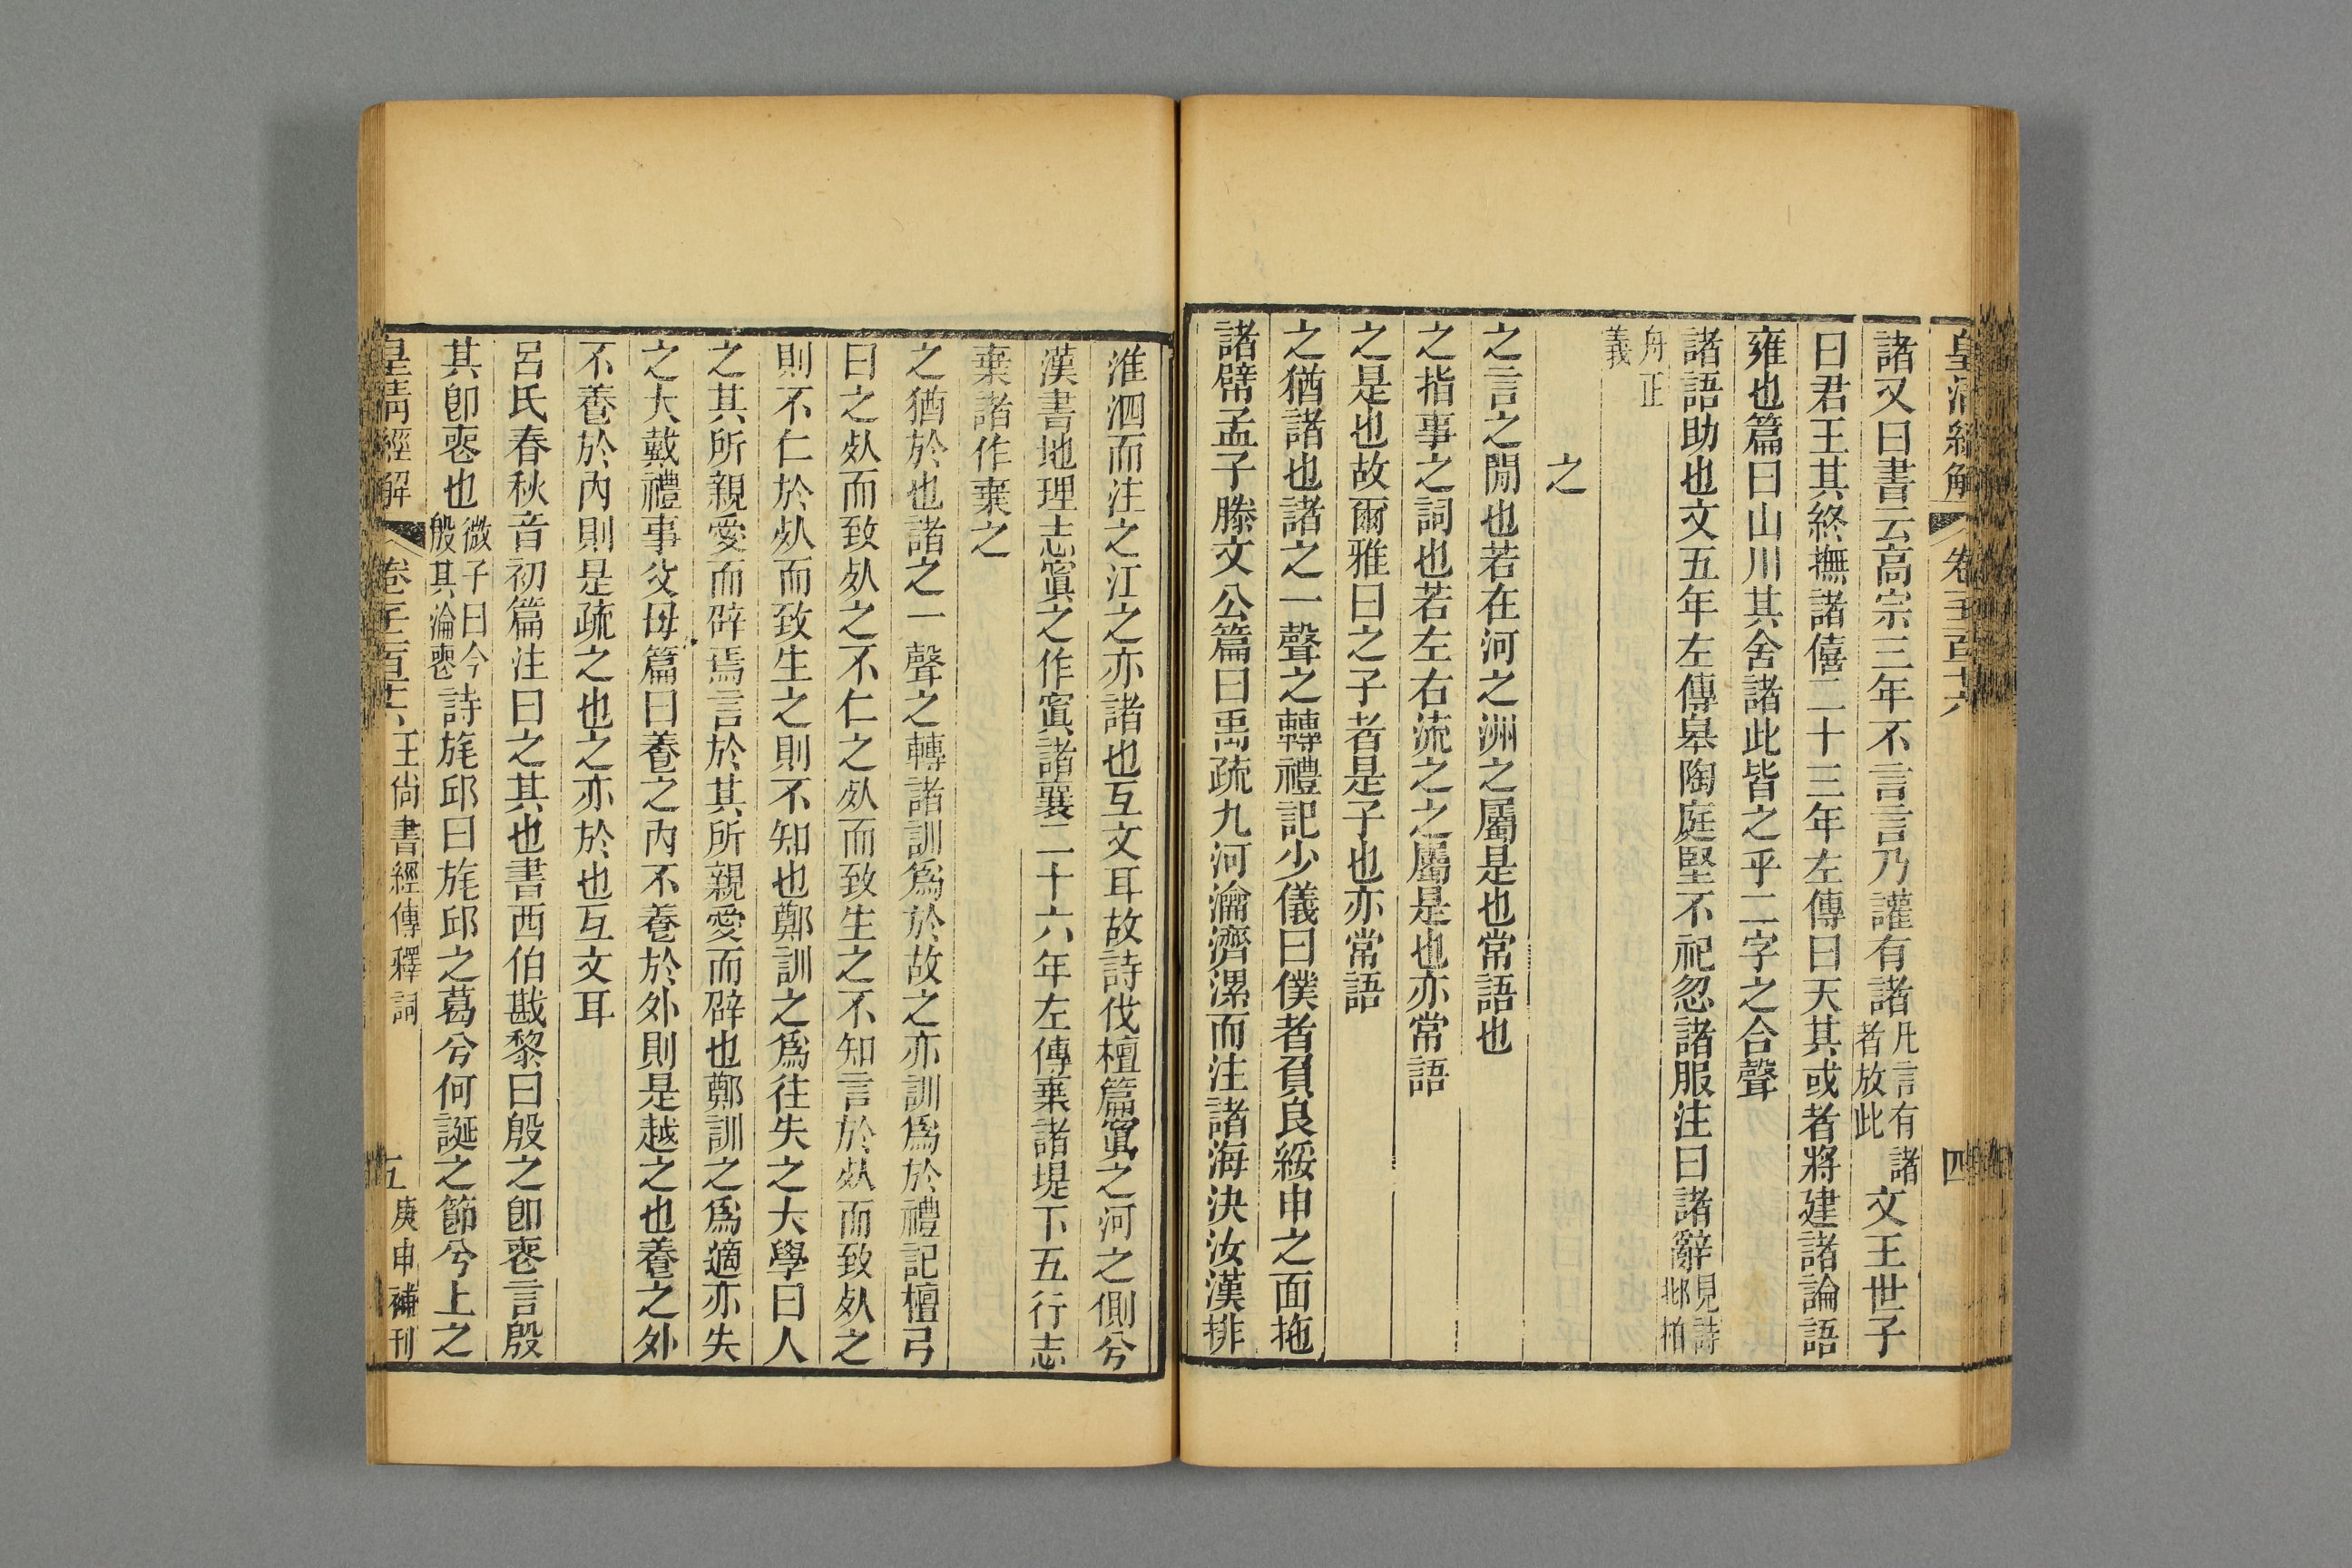 皇清經解
卷千二百十六
四
諸又曰書云高宗三年不言言乃讙有諸凡言有諸者放此文王世子
曰君王其終撫諸僖二十三年左傳曰天其或者將建諸論語
雍也篇曰山川其舍諸此皆之乎二字之合聲
諸語助也文五年左傳皋陶庭堅不祀忽諸服注曰諸辭見詩邶柏
舟正義
之
之言之閒也若在河之洲之屬是也常語也
之指事之詞也若左右流之之屬是也亦常語
之是也故爾雅曰之子者是子也亦常語
之猶諸也諸之一聲之轉禮記少儀曰僕者負良綏申之面拖
諸幦孟子滕文公篇曰禹疏九河瀹濟漯而注諸海決汝漢排
淮泗而注之江之亦諸也互文耳故詩伐檀篇寘之河之側兮
漢書地理志寘之作寘諸襄二十六年左傳棄諸堤下五行志
棄諸作棄之
之猶於也諸之一聲之轉諸訓為於故之亦訓為於禮記檀弓
曰之𣦸而致𣦸之不仁之𣦸而致生之不知言於𣦸而致𣦸之
則不仁於𣦸而致生之則不知也鄭訓之為往失之大學曰人
之其所親愛而辟焉言於其所親愛而辟也鄭訓之為適亦失
之大戴禮事父母篇曰養之內不養於外則是越之也養之外
不養於內則是疏之也之亦於也互文耳
呂氏春秋音初篇注曰之其也書西伯戡黎曰殷之卽喪言殷
其卽喪也微子曰今殷其淪喪詩旄邱曰旄邱之葛兮何誕之節兮上之
皇清經解
卷千二百十六
王尙書經傳釋詞
五
庚申補刊